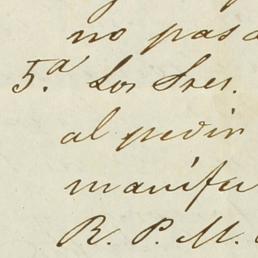 no pas
5.ª Los Sres.
al pedir
manife
R. P. M.